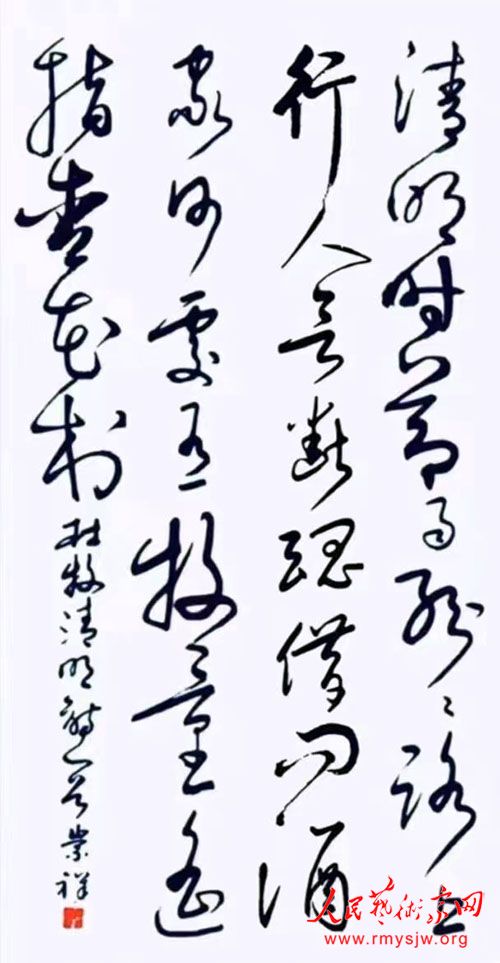 清明时节雨纷纷路上
行人欲断魂借问酒
家何處有牧童遥
指杏花村
杜牧清明诗一首 崇祥
人民藝術家网
www.rmysjw.org